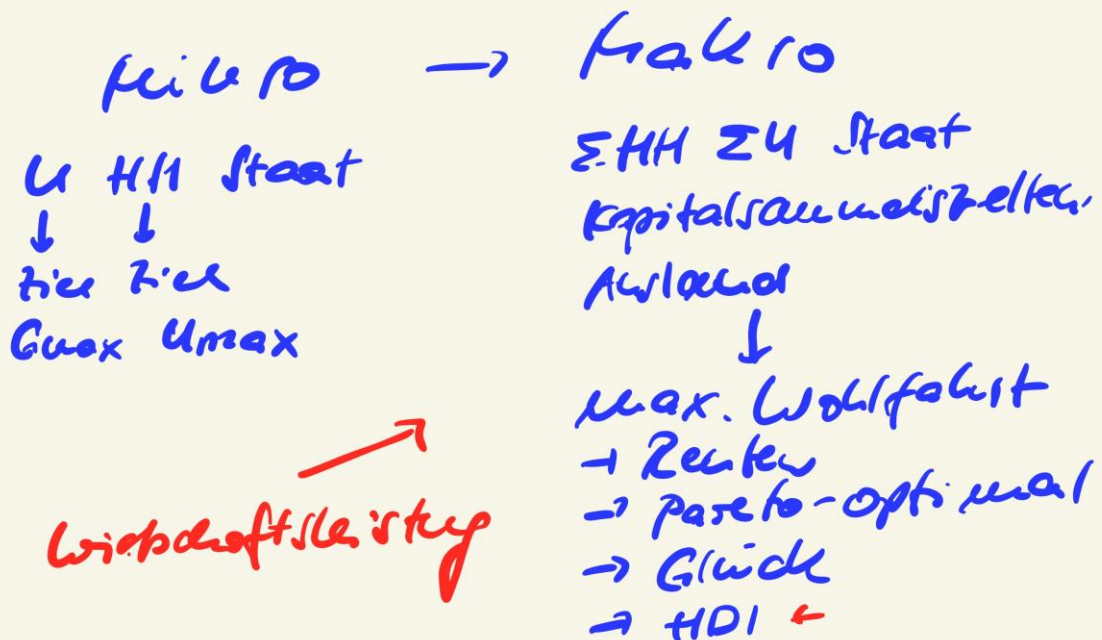 Mikro → Makro
U HH Staat
↓ ↓
Ziel Ziel
Gmax Umax
ΣHH ΣU Staat
Kapitalsammelstellen,
Ausland
↓
max. Wohlfahrt
→ Renten
→ Pareto-optimal
→ Glück
→ HDI ←
Wirtschaftsleistung